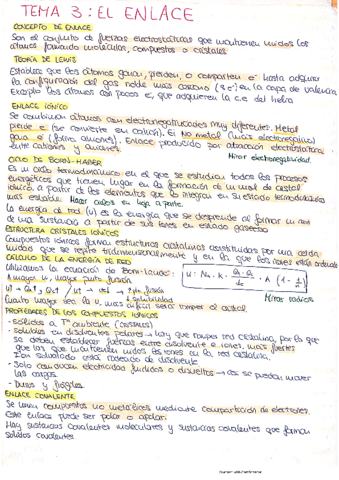 TEMA 3: EL ENLACE
CONCEPTO DE ENLACE
Son el conjunto de fuerzas electrostáticas que mantienen unidos los
átomos formando moléculas, compuestos o cristales
TEORÍA DE LEWIS
Establece que los átomos ganan, pierden, o comparten e⁻ hasta adquirir
la configuración del gas noble más cercano (8e⁻) en la capa de valencia.
Excepto los átomos con pocos e⁻, que adquieren la c.e del helio
ENLACE IÓNICO
Se combinan átomos con electronegatividades muy diferentes. Metal
pierde e⁻ (se convierte en catión). El No metal (más electronegativo)
gana e⁻ (forma aniones). Enlace producido por atracción electrostática
entre cationes y aniones. Mirar electronegatividad.
CICLO DE BORN-HABER
Es un ciclo termodinámico en el que se estudian todos los procesos
energéticos que tienen lugar en la formación de un mol de cristal
iónico a partir de los elementos que lo integran en su estado termodinámico
más estable. Hacer ciclos en hoja a parte.
La energía de red (U) es la energía que se desprende al formar un mol
de una sustancia a partir de sus iones en estado gaseoso
ESTRUCTURA CRISTALES IÓNICOS
Compuestos iónicos forman estructuras cristalinas constituidas por una celda
unidad que se repite tridimensionalmente y en la que los iones están ordenados
CÁLCULO DE LA ENERGÍA DE RED
Utilizamos la ecuación de Born-Landé:
A mayor U, mayor punto fusión
Cuanto mayor sea la U, más difícil será romper el cristal. Mirar radios
PROPIEDADES DE LOS COMPUESTOS IÓNICOS
- Sólidos a Tª ambiente (cristales)
- Solubles en disolventes polares → Hay que romper red cristalina, por lo que
se deben establecer fuerzas entre disolvente e iones, más fuertes
que las que mantienen unidos los iones en la red cristalina.
Ion solvatado está rodeado de disolvente
- Solo conducen electricidad fundidos o disueltos → así se pueden mover
las cargas.
- Duros y frágiles
ENLACE COVALENTE
Se unen compuestos no metálicos mediante compartición de electrones.
Este enlace puede ser polar o apolar.
Hay sustancias covalentes moleculares y sustancias covalentes que forman
sólidos covalentes